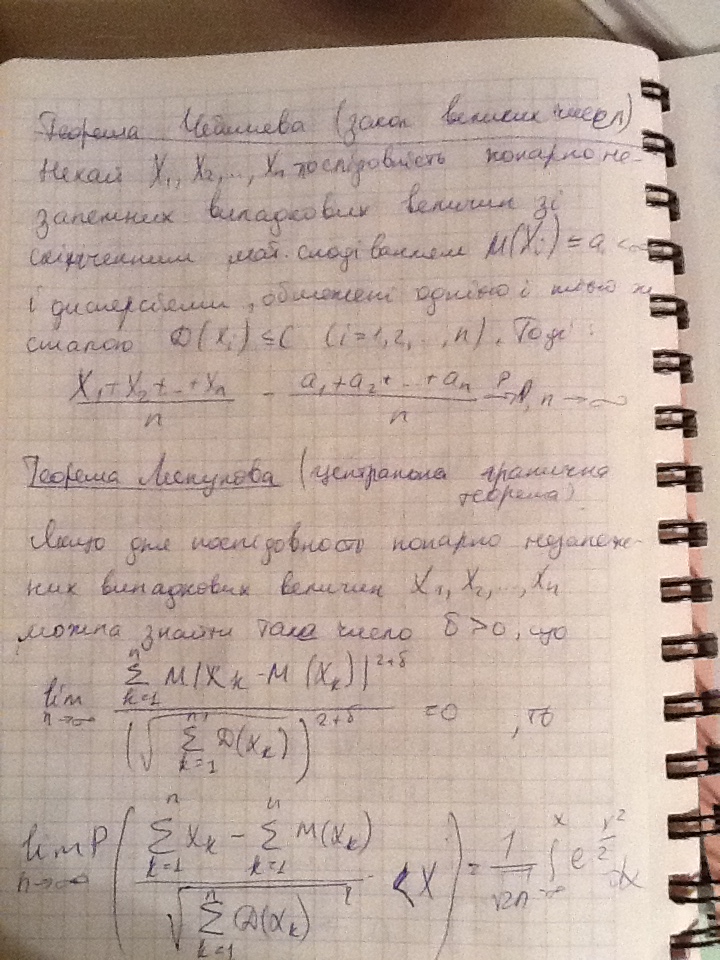 Теорема Чебишева (Закон великих чисел)
Нехай X₁, X₂,..., Xₙ послідовність попарно не-
залежних випадкових величин зі
скінченними мат. сподіванням M(Xᵢ) = aᵢ < ∞
і дисперсіями, обмежені однією і тією ж
сталою D(Xᵢ) ≤ C (i=1,2,..,n), Тоді:
(X₁+X₂+...+Xₙ)/n − (a₁+a₂+...+aₙ)/n →ᴾ , n→∞
Теорема Ляпунова (центральна гранична
теорема)
Якщо для послідовності попарно незалеж-
них випадкових величин X₁, X₂, ..., Xₙ
можна знайти таке число δ>0, що
lim n→∞ (∑ₖ₌₁ⁿ M|Xₖ − M(Xₖ)|²⁺ᵟ) / (√(∑ₖ₌₁ⁿ D(Xₖ)))²⁺ᵟ = 0 , то
lim n→∞ P( (∑ₖ₌₁ⁿ Xₖ − ∑ₖ₌₁ⁿ M(Xₖ)) / √(∑ₖ₌₁ⁿ D(Xₖ)) < X ) = 1/√2π ∫₋∞ˣ e^(−x²/2) dx